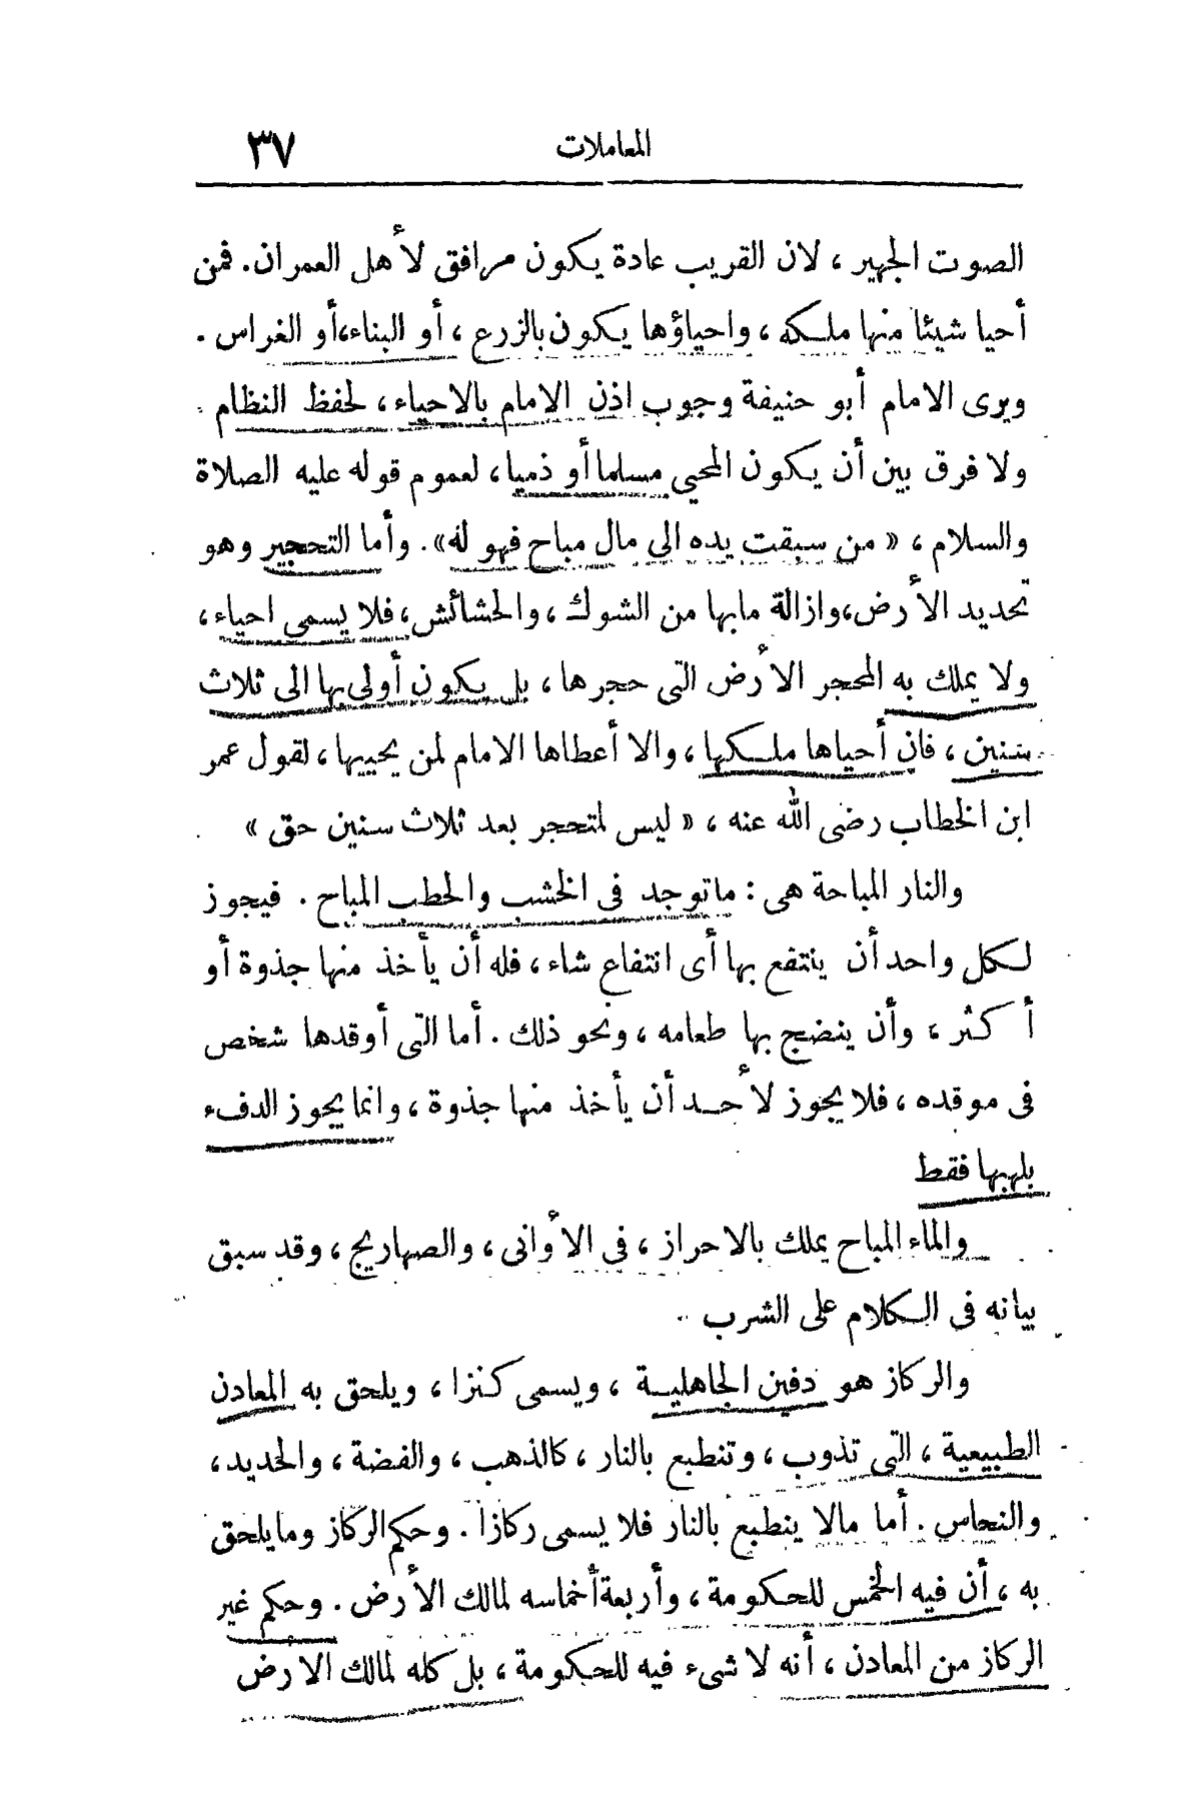 المعاملات ٣٧
الصوت الجهير ، لان القريب عادة يكون مرافق لأهل العمران . فمن
أحيا شيئا منها ملكه ، واحياؤها يكون بالزرع ، أو البناء، أو الغراس .
ويرى الامام أبو حنيفة وجوب اذن الامام بالاحياء ، لحفظ النظام .
ولا فرق بين أن يكون المحيى مسلما أو ذميا ، لعموم قوله عليه الصلاة
والسلام ، « من سبقت يده الى مال مباح فهو له » . وأما التحجير وهو
تحديد الأرض ، وازالة مابها من الشوك ، والحشائش ، فلا يسمى احياء ،
ولا يملك به المحجر الأرض التى حجرها ، بل يكون أولى بها الى ثلاث
سنين ، فان أحياها ملكها ، والا أعطاها الامام لمن يحييها ، لقول عمر
ابن الخطاب رضى الله عنه ، « ليس لمتحجر بعد ثلاث سنين حق »
والنار المباحة هى : ماتوجد فى الخشب والحطب المباح . فيجوز
لكل واحد أن ينتفع بها أى انتفاع شاء ، فله أن يأخذ منها جذوة أو
أكثر ، وأن ينضج بها طعامه ، ونحو ذلك . أما التى أوقدها شخص
فى موقده ، فلا يجوز لأحد أن يأخذ منها جذوة ، وانما يجوز الدفء
بلهبها فقط
والماء المباح يملك بالاحراز ، فى الأوانى ، والصهاريج ، وقد سبق
بيانه فى الكلام على الشرب
والركاز هو دفين الجاهلية ، ويسمى كنزا ، ويلحق به المعادن
الطبيعية ، التى تذوب ، وتنطبع بالنار ، كالذهب ، والفضة ، والحديد ،
والنحاس . أما مالا ينطبع بالنار فلا يسمى ركازا . وحكم الركاز وما يلحق
به ، أن فيه الخمس للحكومة ، وأربعة أخماسه لمالك الأرض . وحكم غير
الركاز من المعادن ، أنه لا شىء فيه للحكومة ، بل كله لمالك الارض